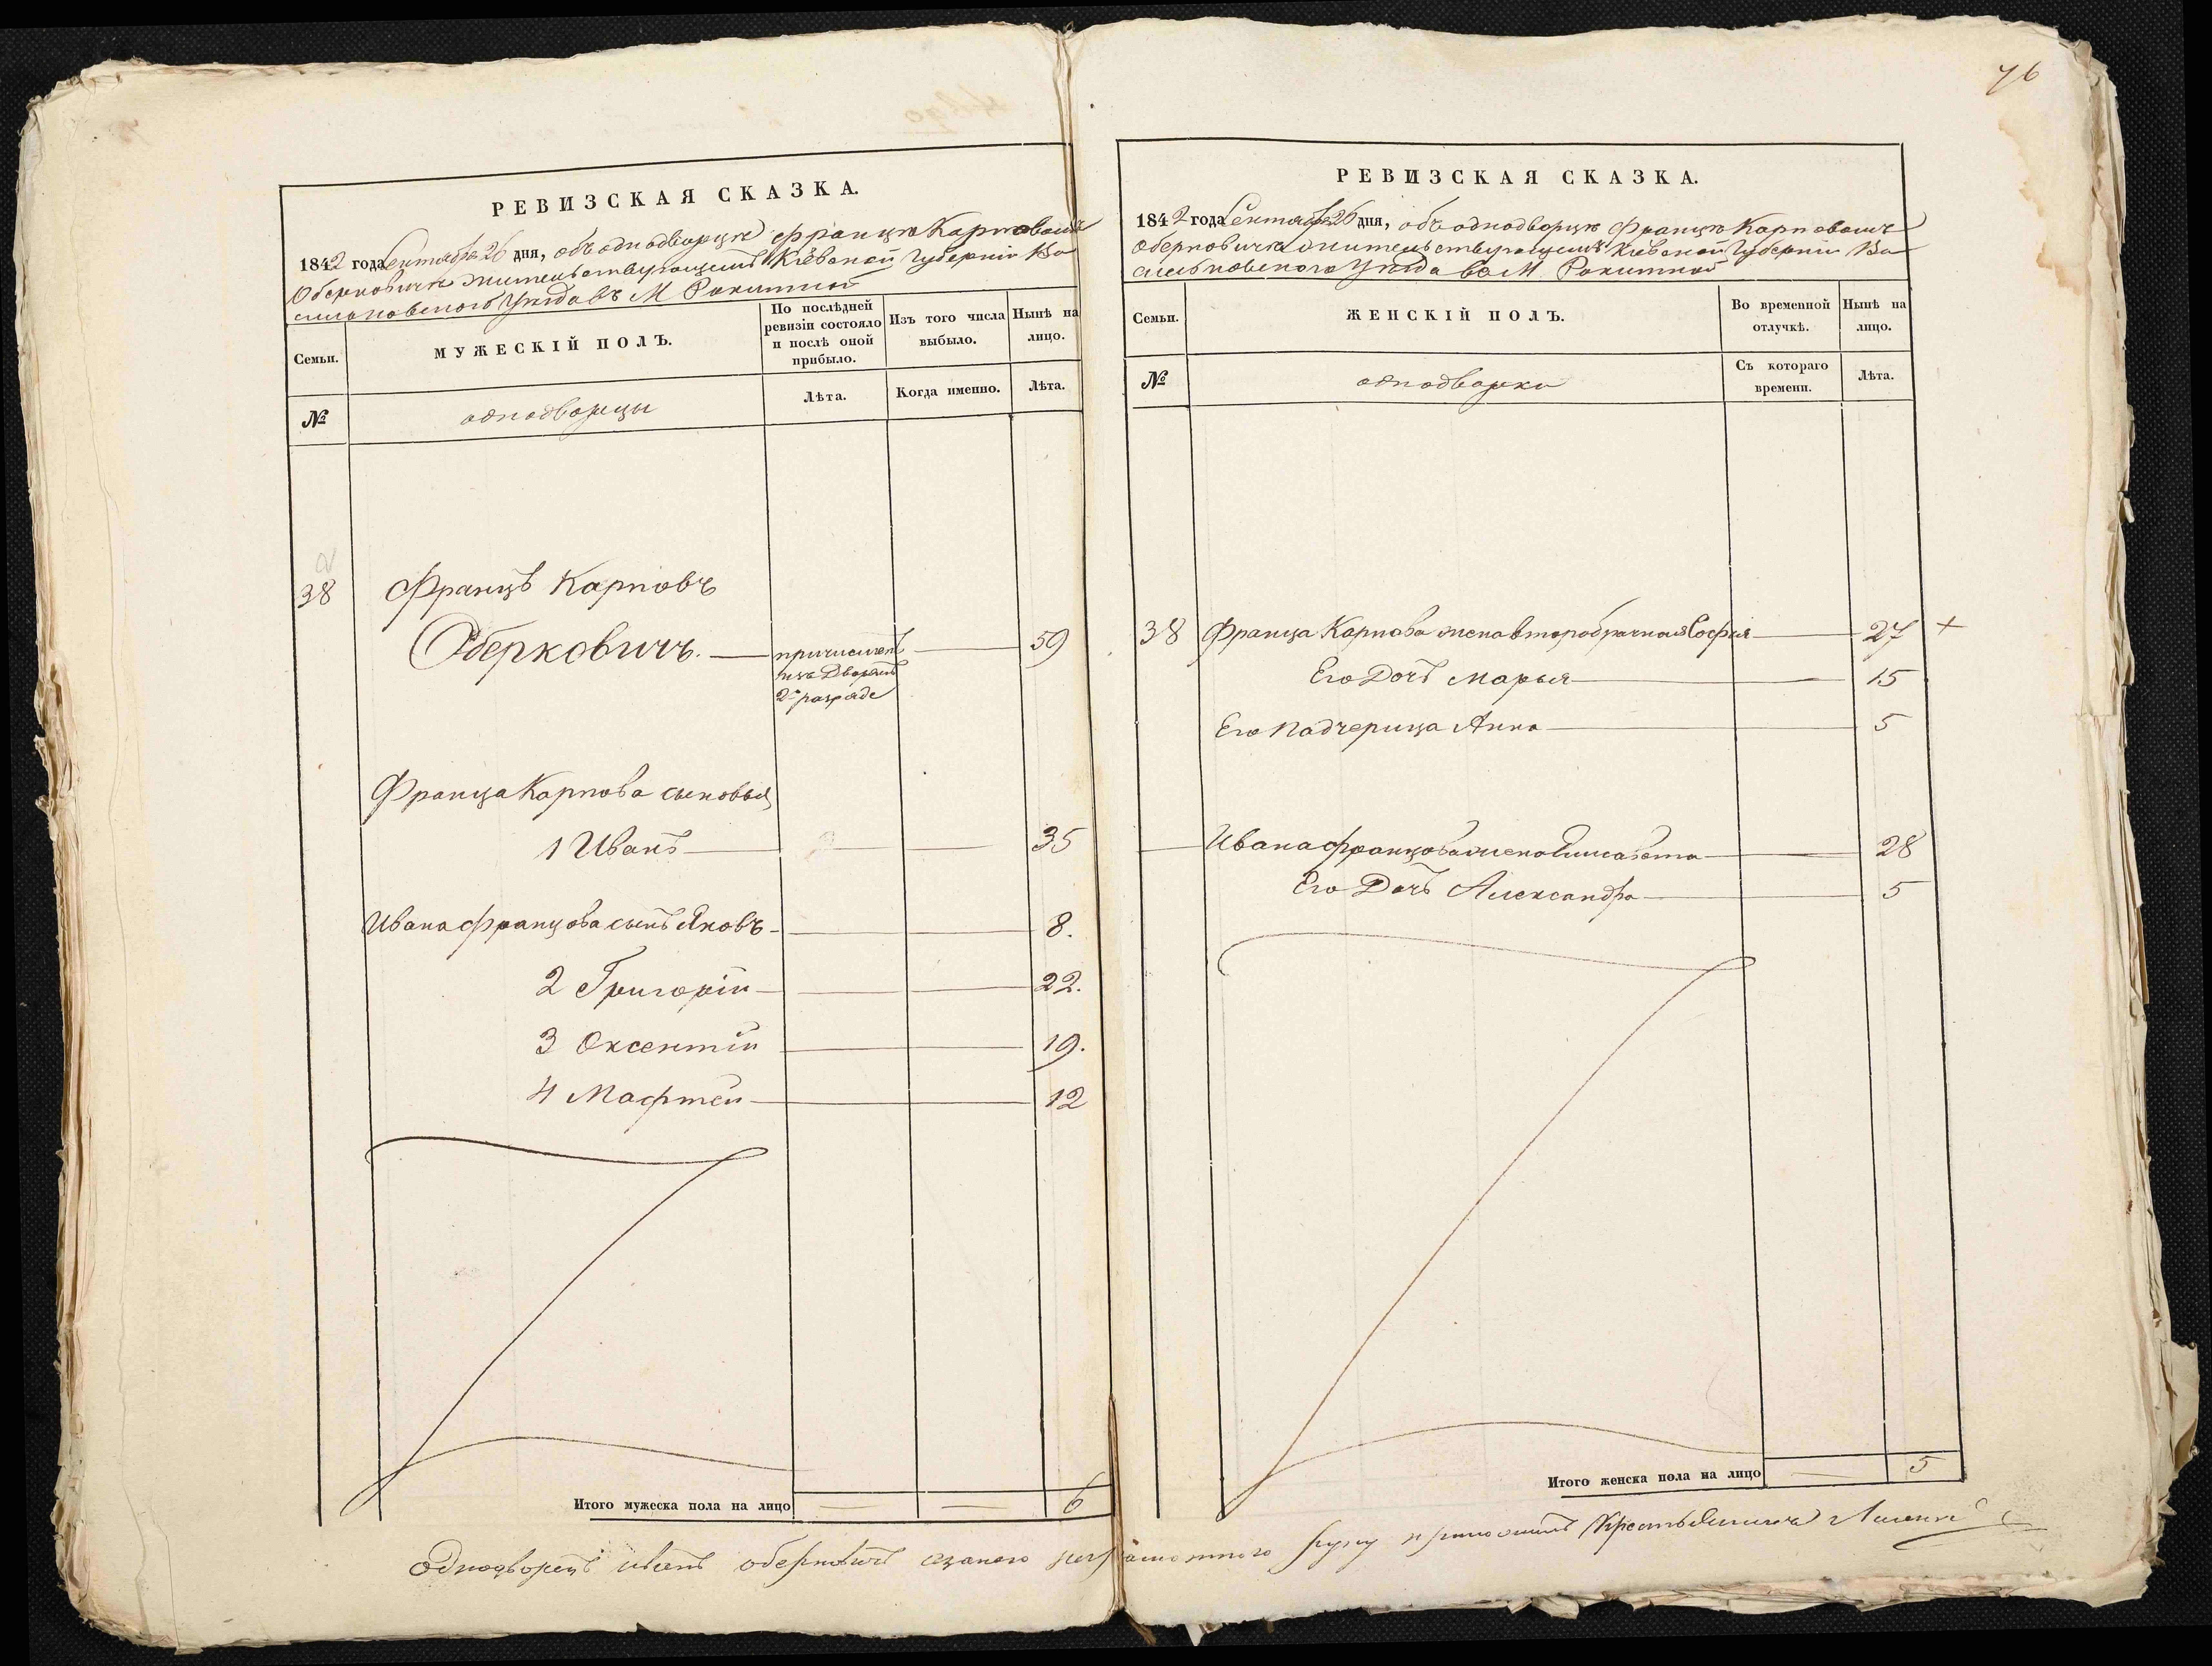 76
РЕВИЗСКАЯ СКАЗКА.
1842 года Сентября 26 дня, объ однодворцѣ Францѣ Карповомъ
Оберковичѣ жительствующемъ Кіевской Губерніи Ва
сильковскаго Уѣзда въ М Ракитной
Семьи.
МУЖЕСКІЙ ПОЛЪ.
По послѣдней ревизіи состояло и послѣ оной прибыло.
Изъ того числа выбыло.
Нынѣ на лицо.
№
однодворцы
Лѣта.
Когда именно.
Лѣта.
38 Францъ Карповъ
Оберковичъ. причисленъ 59
изъ Дворянъ
2го разряда
Франца Карпова сыновья
1 Иванъ 35
Ивана Францова сынъ Яковъ 8.
2 Григорій 22.
3 Оксентій 19.
4 Мафтей 12
Итого мужеска пола на лицо 6
РЕВИЗСКАЯ СКАЗКА.
1842 года Сентября 26 дня, объ однодворцѣ Францѣ Карповомъ
Оберковичѣ жительствующемъ Кіевской Губерніи Ва
сильковского Уѣзда во М Ракитной
Семьи.
ЖЕНСКІЙ ПОЛЪ.
Во временной отлучкѣ.
Нынѣ на лицо.
№
однодворки
Съ котораго времени.
Лѣта.
38 Франца Карпова жена второбрачная Софія 27 +
Его Дочь Марья 15
Его Падчерица Анна 5
Ивана Францова жена Елисавета 28
Его Дочь Александра 5
Итого женска пола на лицо 5
Однодворецъ иванъ оберковичъ азанего неграмотного руку приложилъ